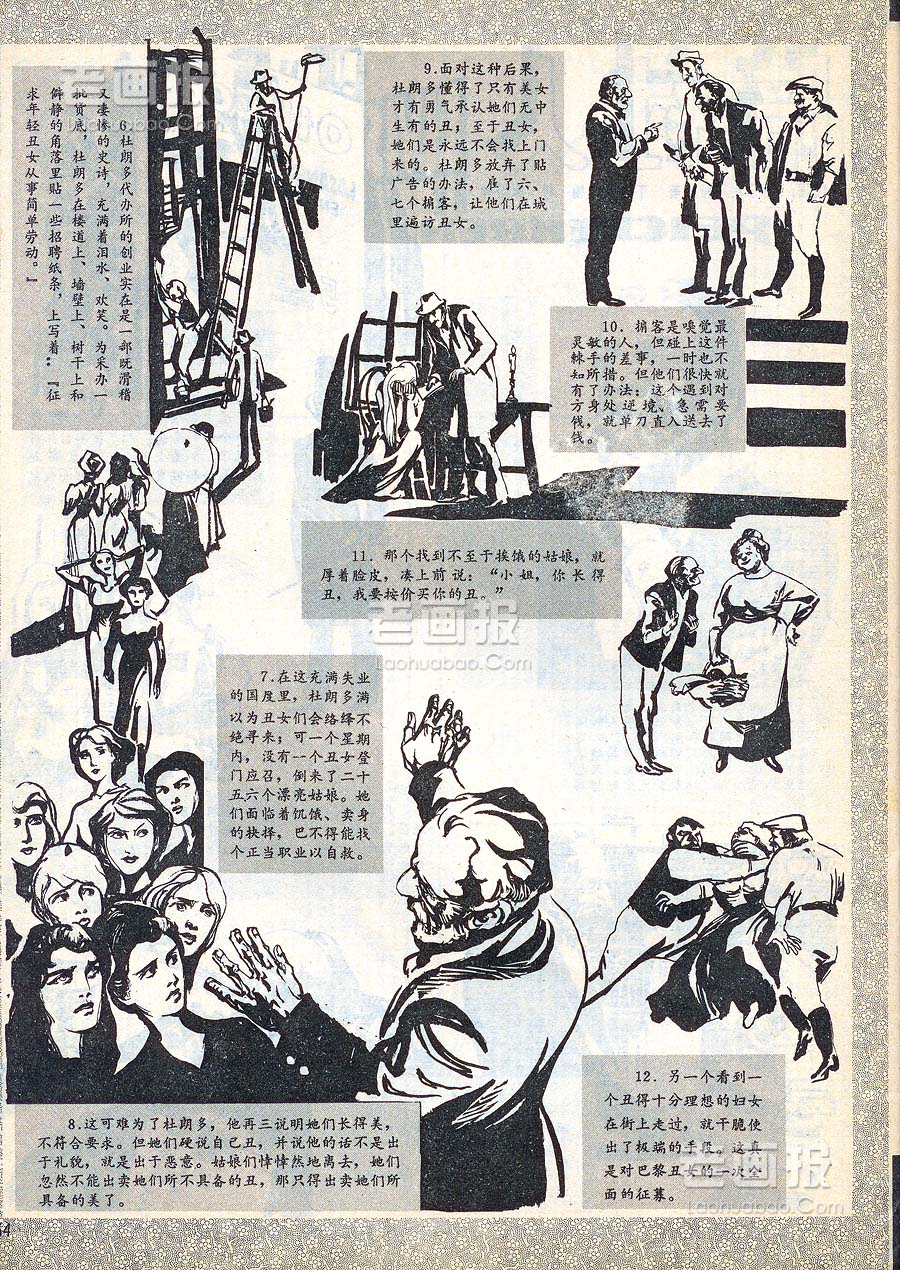 6.杜朗多代办所的创业实在是一部既滑稽
又凄惨的史诗，充满着泪水、欢笑。为采办一
批货底，杜朗多在楼道上、墙壁上、树干上和
僻静的角落里贴一些招聘纸条，上写着：『征
求年轻丑女从事简单劳动。』
7.在这充满失业
的国度里，杜朗多满
以为丑女们会络绎不
绝寻来；可一个星期
内，没有一个丑女登
门应召，倒来了二十
五六个漂亮姑娘。她
们面临着饥饿、卖身
的抉择，巴不得能找
个正当职业以自救。
8.这可难为了杜朗多，他再三说明她们长得美，
不符合要求。但她们硬说自己丑，并说他的话不是出
于礼貌，就是出于恶意。姑娘们悻悻然地离去，她们
忽然不能出卖她们所不具备的丑，那只得出卖她们所
具备的美了。
9.面对这种后果，
杜朗多懂得了只有美女
才有勇气承认她们无中
生有的丑；至于丑女，
她们是永远不会找上门
来的。杜朗多放弃了贴
广告的办法，雇了六、
七个掮客，让他们在城
里遍访丑女。
10．掮客是嗅觉最
灵敏的人，但碰上这件
棘手的差事，一时也不
知所措。但他们很快就
有了办法：这个遇到对
方身处逆境、急需要
钱，就单刀直入送去了
钱。
11．那个找到不至于挨饿的姑娘，就
厚着脸皮，凑上前说：“小姐，你长得
丑，我要按价买你的丑。”
12．另一个看到一
个丑得十分理想的妇女
在街上走过，就干脆使
出了极端的手段。这真
是对巴黎丑女的一次全
面的征募。
老画报
Laohuabao.Com
老画报
Laohuabao.Com
老画报
Laohuabao.Com
老画报
Laohuabao.Com
54